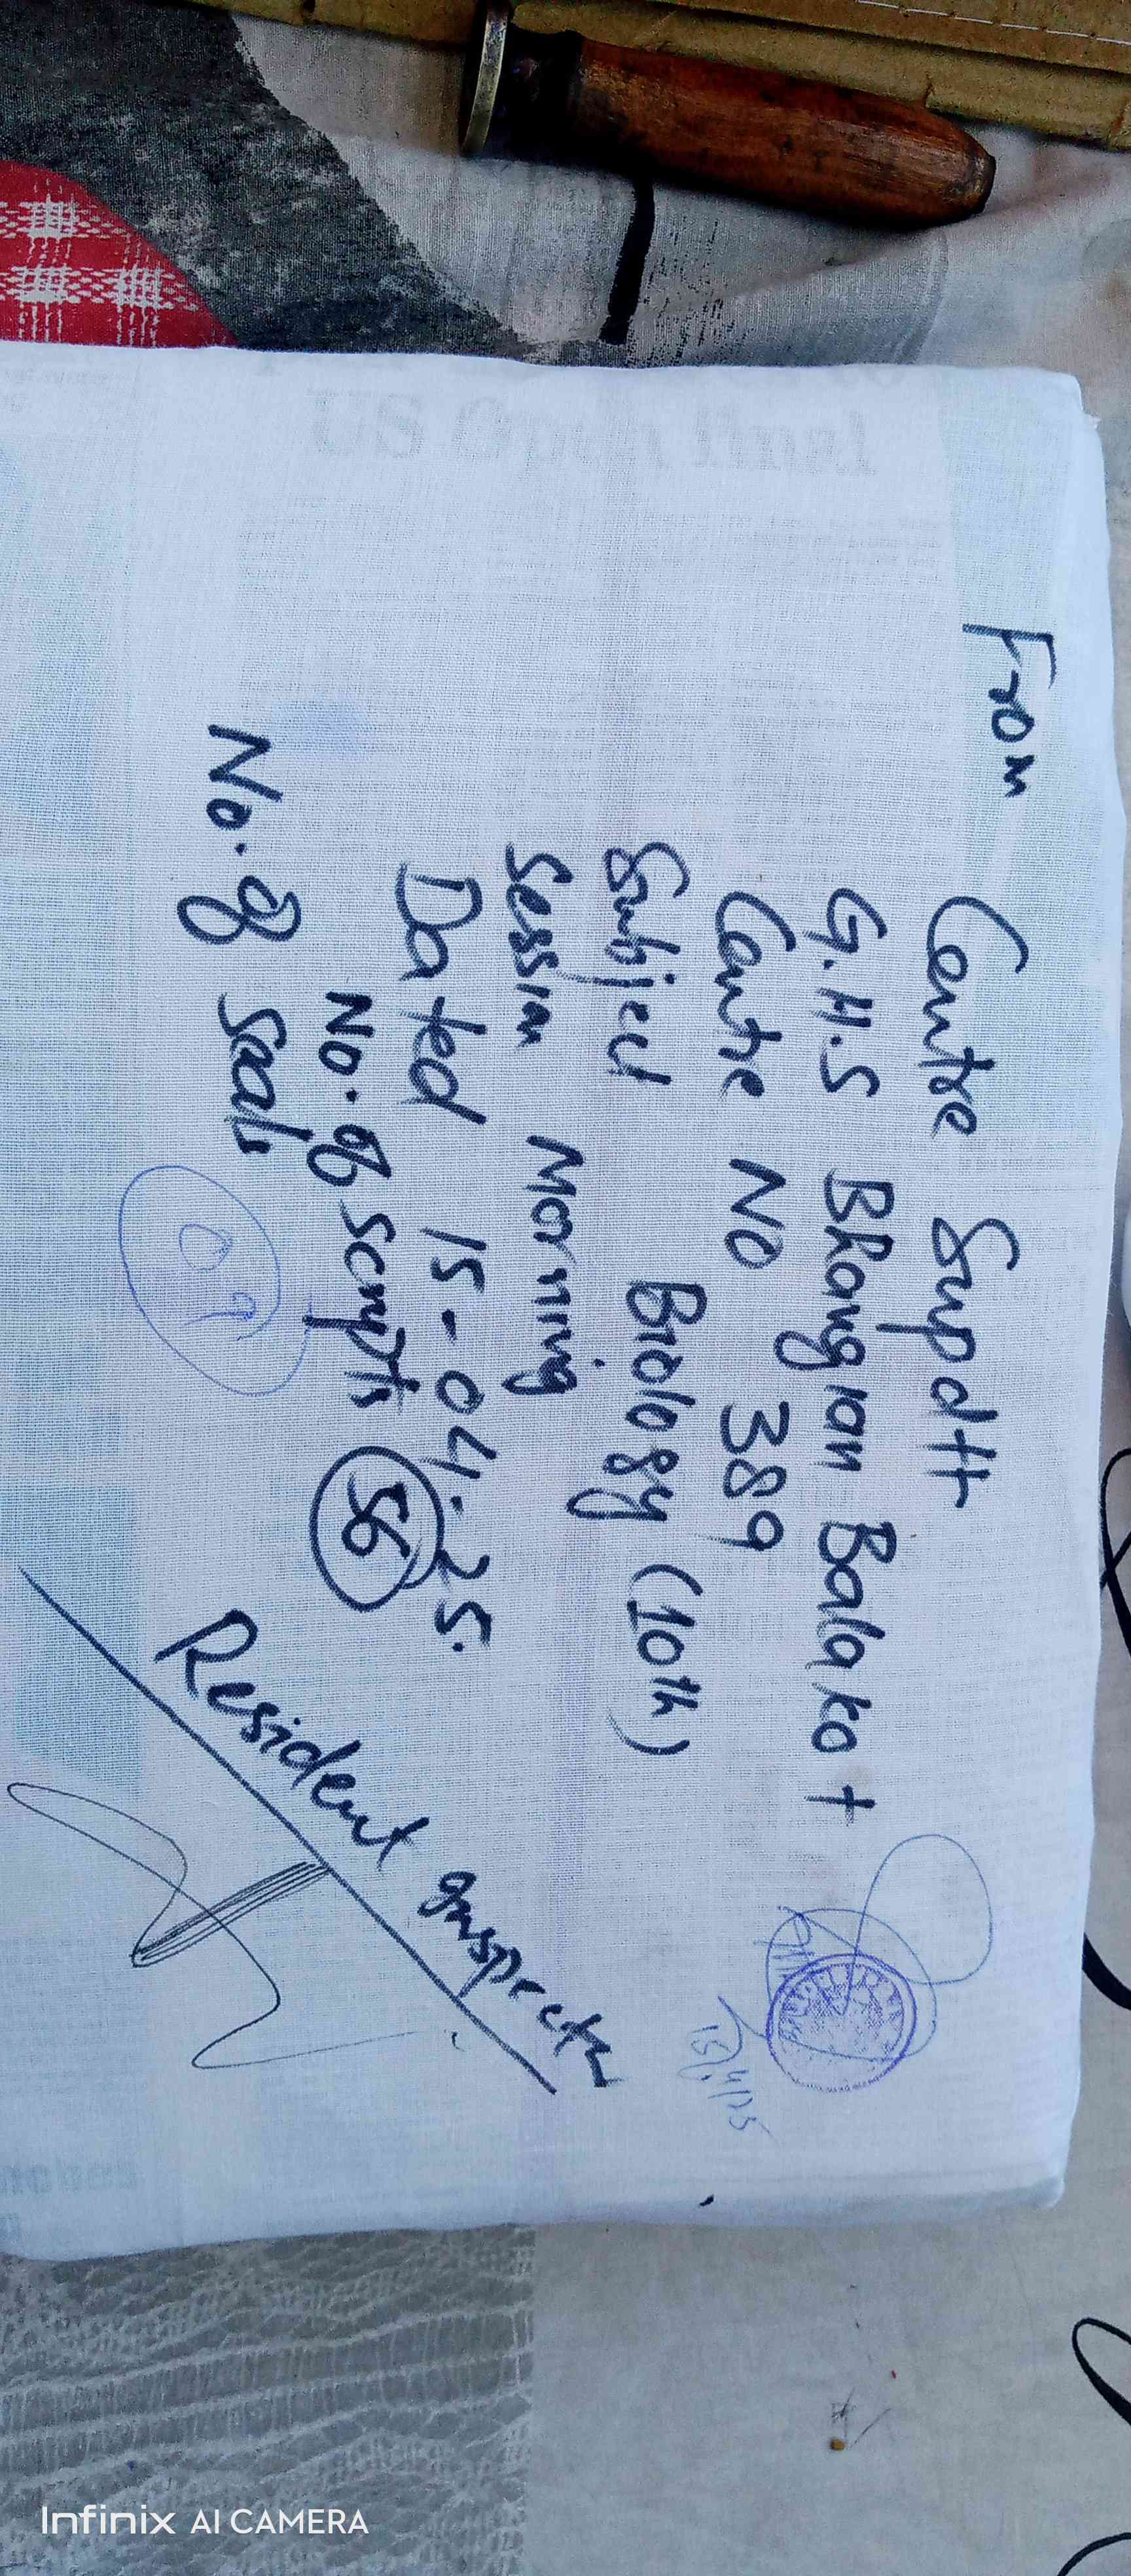 US Open final
From
Centre Supdtt
G.H.S Bhangian Balakot
Centre No 389
Subject Biology (10th)
Session Morning
Dated 15-04.25.
No. of scripts 56
No. of seals 09
Resident Inspector
15/4/25
Infinix AI CAMERA